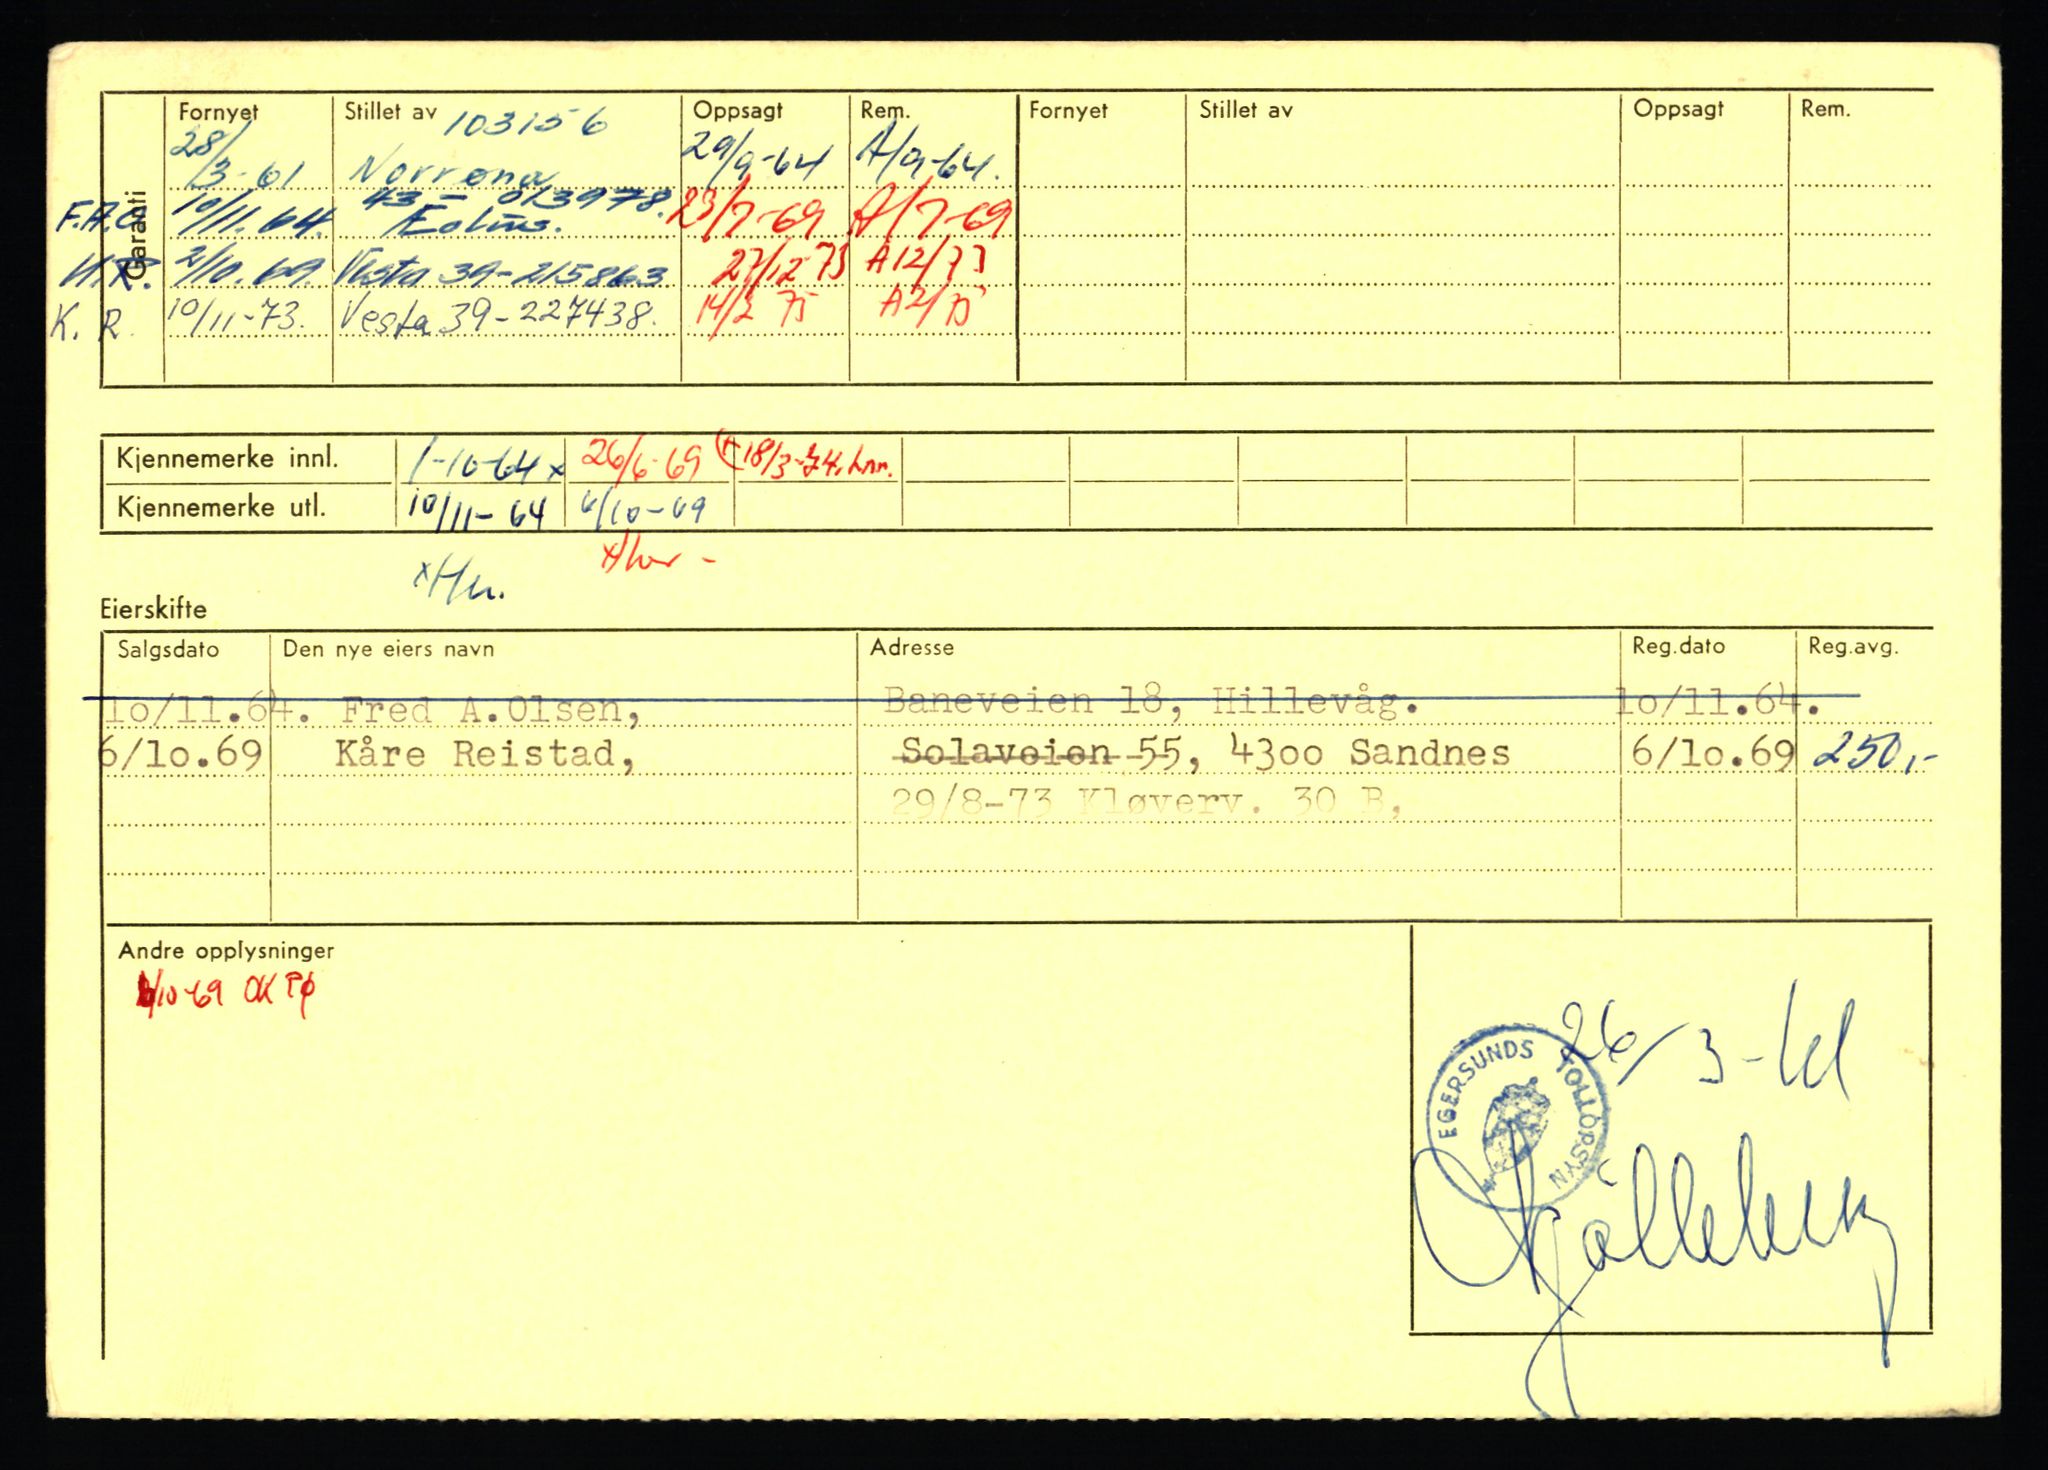 Garanti
Fornyet Stillet av 103156 Oppsagt Rem. Fornyet Stillet av Oppsagt Rem.
28/3-61 Norrøna 29/9-64 A/9-64.
F.A.O. 10/11.64. 43 - 013978. Æolus. 23/7-69 A/7-69
K.R. 2/10.69. Vesta 39-215863 27/12-73 A12/73
K. R. 10/11-73. Vesta 39-227438. 14/2 75 A2/75
Kjennemerke innl. 1-10-64 x 26/6-69 (x 18/3-74.
Kjennemerke utl. 10/11-64 6/10-69
Eierskifte
Salgsdato Den nye eiers navn Adresse Reg.dato Reg.avg.
10/11.64. Fred A.Olsen, Baneveien 18, Hillevåg. 10/11.64.
6/10.69 Kåre Reistad, Solaveien 55, 4300 Sandnes 6/10.69 250,-
29/8-73 Kløverv. 30 B,
Andre opplysninger
6/10-69 OK
26/3-61
EGERSUNDS TOLLOPSYN